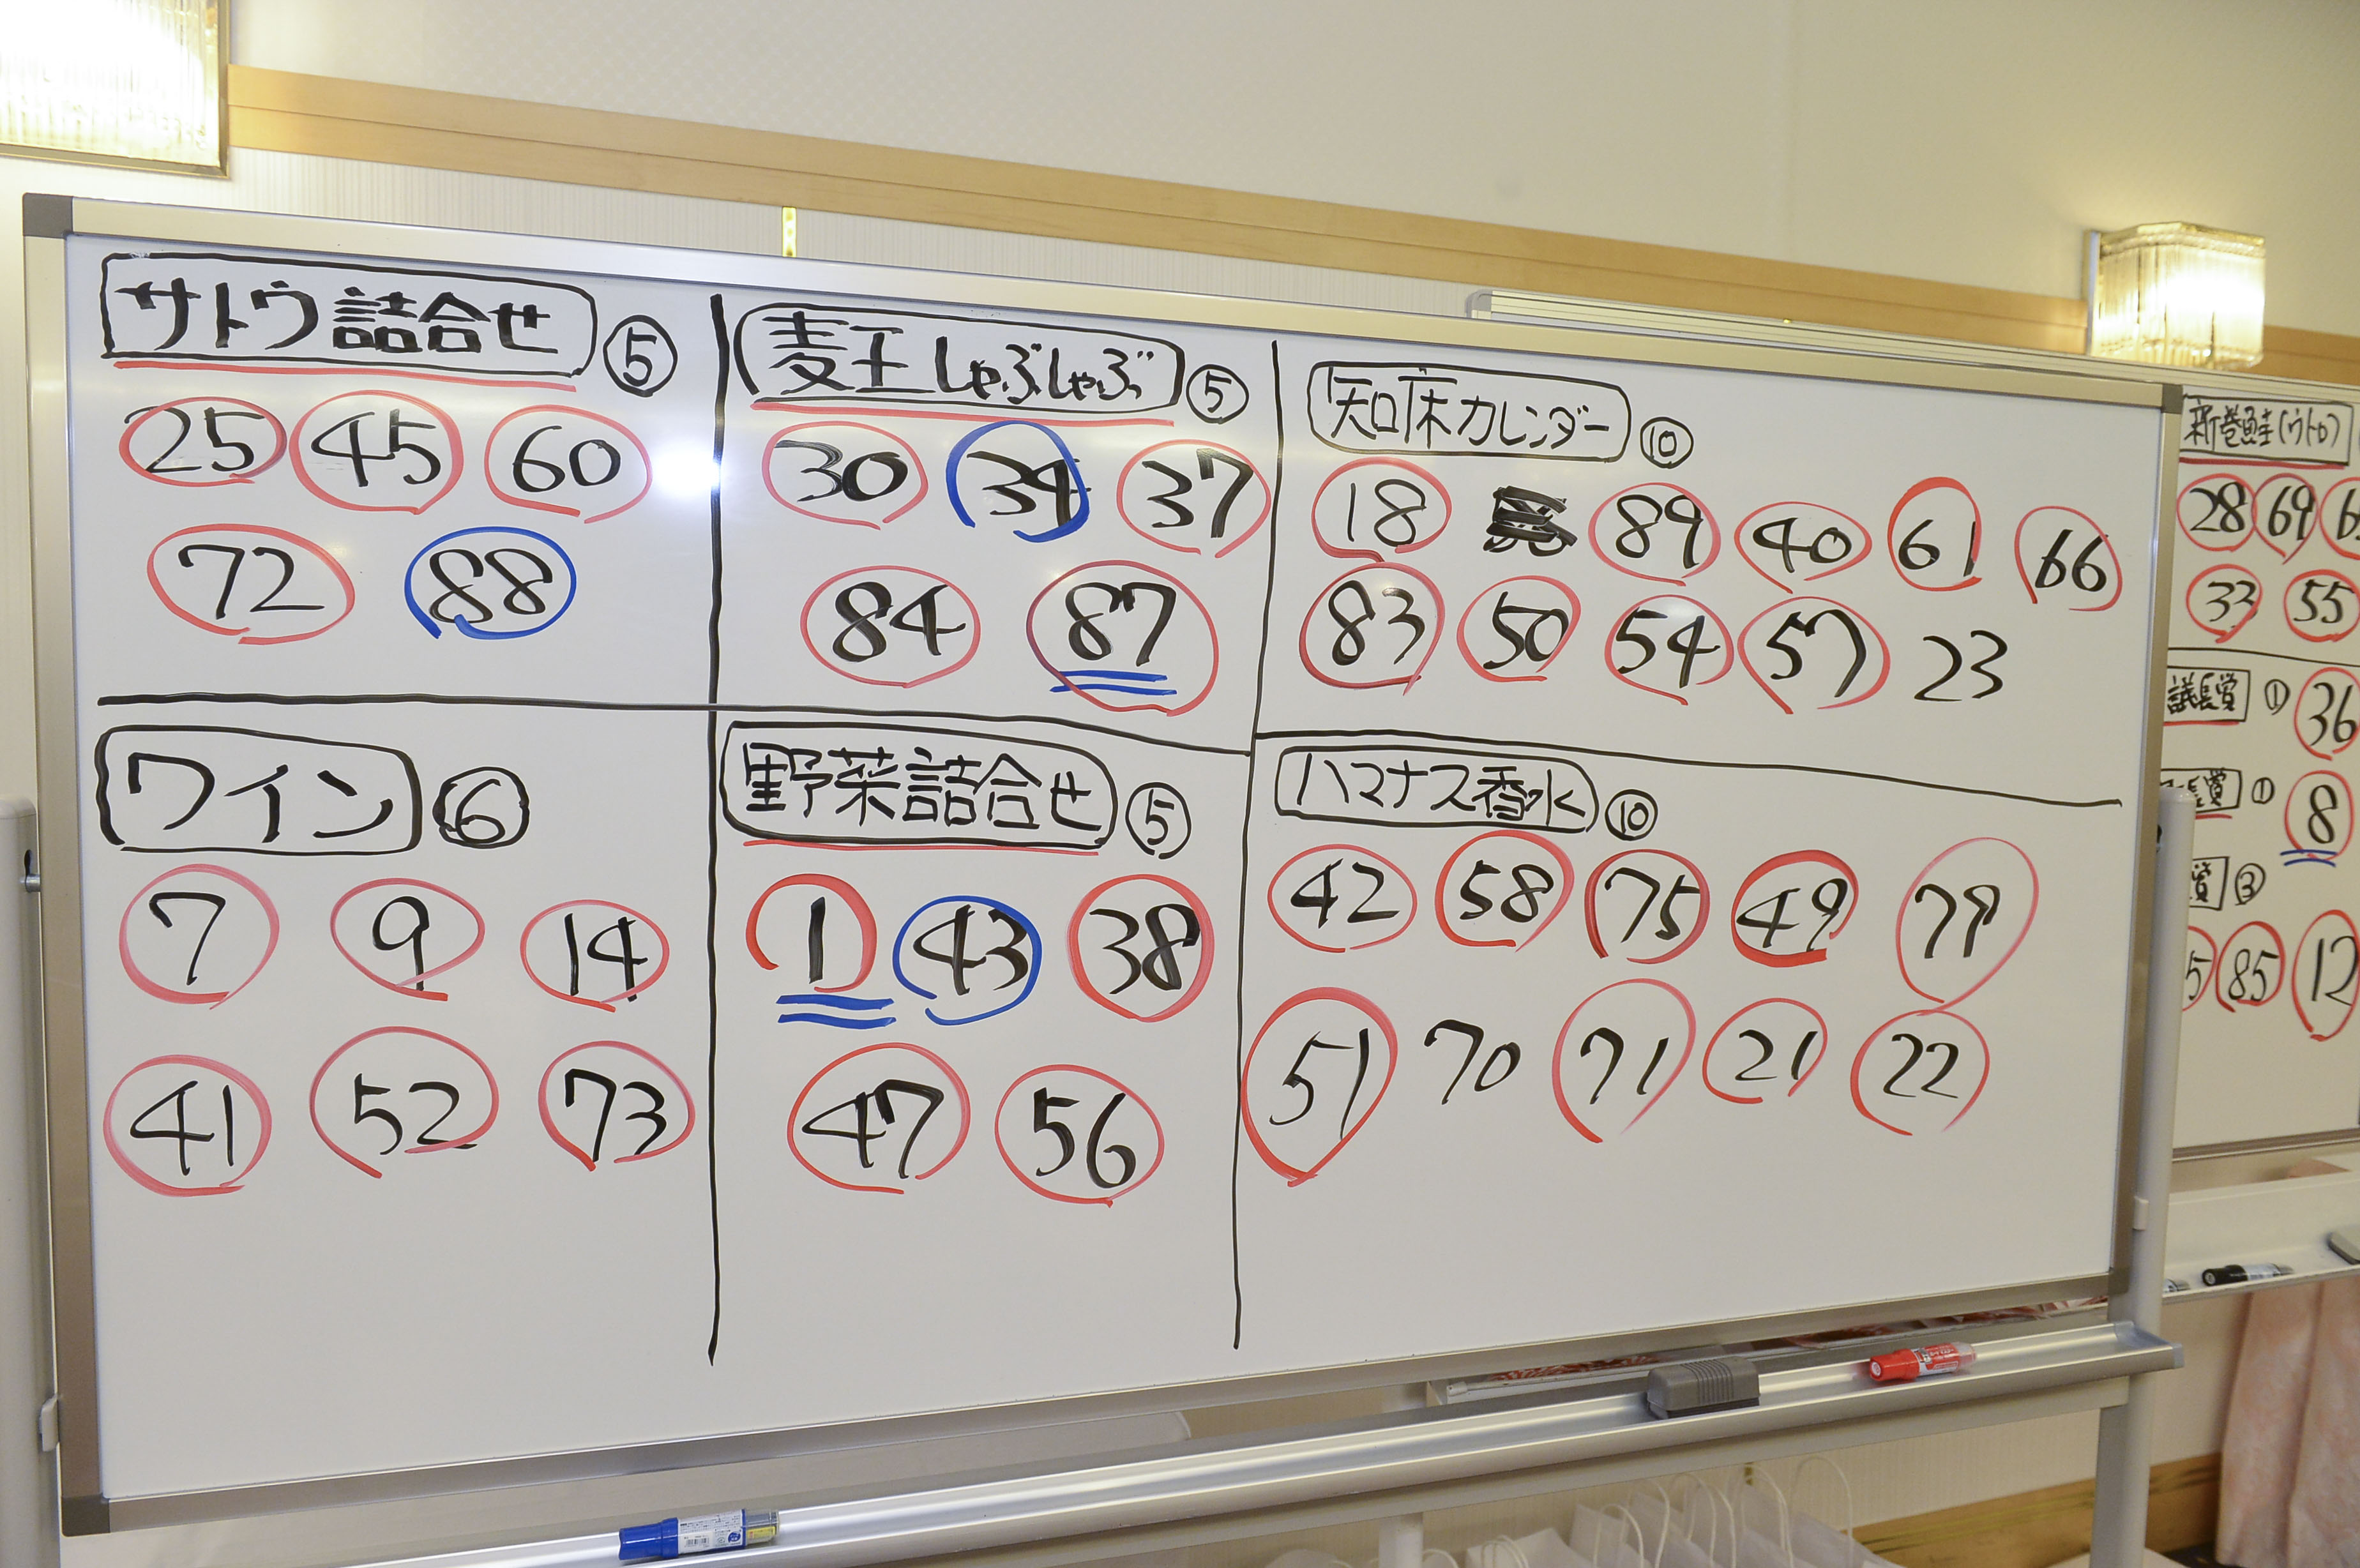 サトウ詰合せ ⑤
25 45 60
72 88
麦王しゃぶしゃぶ ⑤
30 34 37
84 87
知床カレンダー ⑩
18 89 40 61 66
83 50 54 57 23
ワイン ⑥
7 9 14
41 52 73
野菜詰合せ ⑤
1 43 38
47 56
ハマナス香水 ⑩
42 58 75 49 79
51 70 71 21 22
新巻鮭(ウトロ)
28 69
33 55
議長賞 ① 36
長賞 ① 8
賞 ③
5 85 12